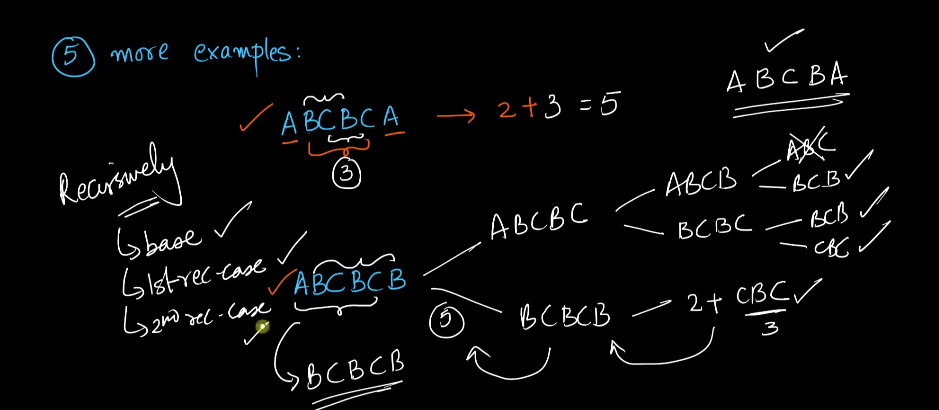 5 more examples:
A B C B A
A B C B C A → 2 + 3 = 5
3
Recursively
base
1st-rec-case
2nd rec-case
A B C B C B
B C B C B
5
A B C B C
A B C B
A B C
B C B
B C B C
B C B
C B C
B C B C B
2 + C B C
3